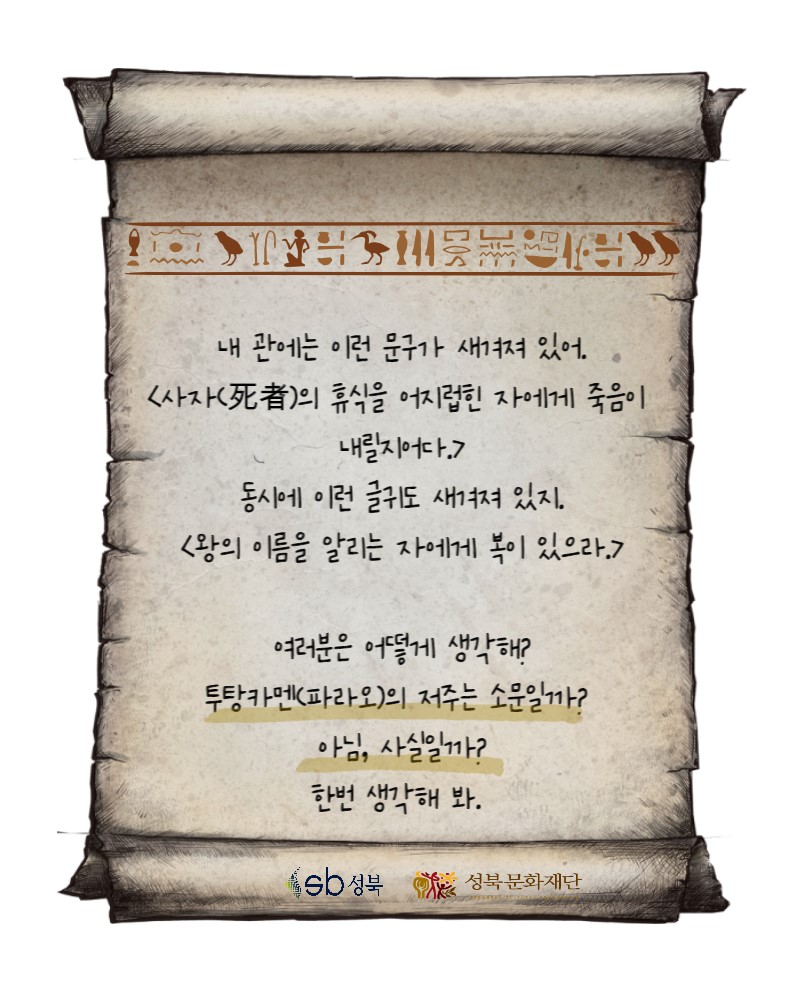 내 관에는 이런 문구가 새겨져 있어.
<사자(死者)의 휴식을 어지럽힌 자에게 죽음이
내릴지어다.>
동시에 이런 글귀도 새겨져 있지.
<왕의 이름을 알리는 자에게 복이 있으라.>
여러분은 어떻게 생각해?
투탕카멘(파라오)의 저주는 소문일까?
아님, 사실일까?
한번 생각해 봐.
sb성북 성북문화재단